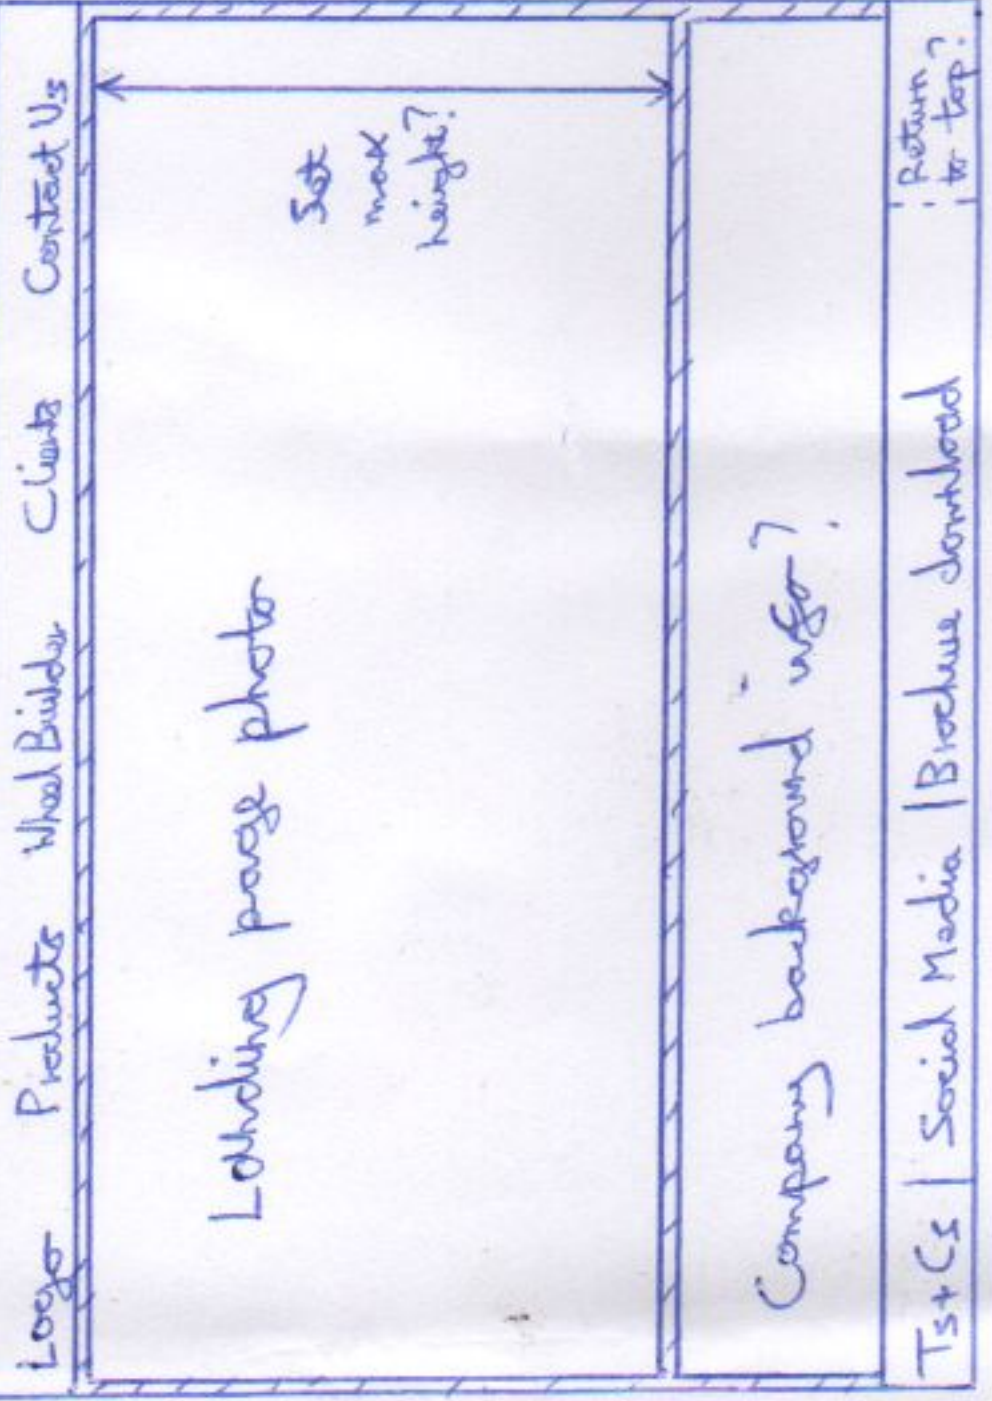 Logo Products Wheel Builder Clients Contact Us
Landing page photo
Set
max
height?
Company background info?
Ts + Cs | Social Media | Brochure download
Return
to top?